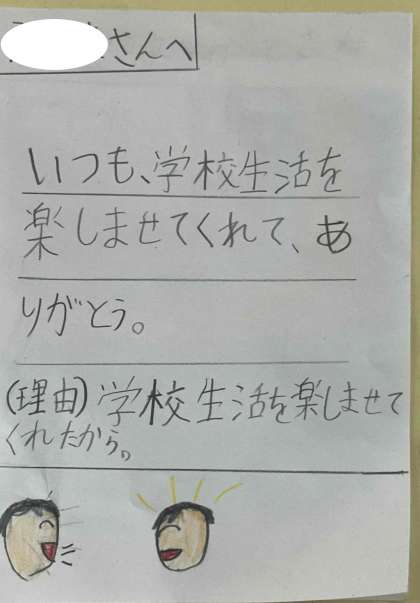 さんへ
いつも、学校生活を
楽しませてくれて、あ
りがとう。
(理由)学校生活を楽しませて
くれたから。